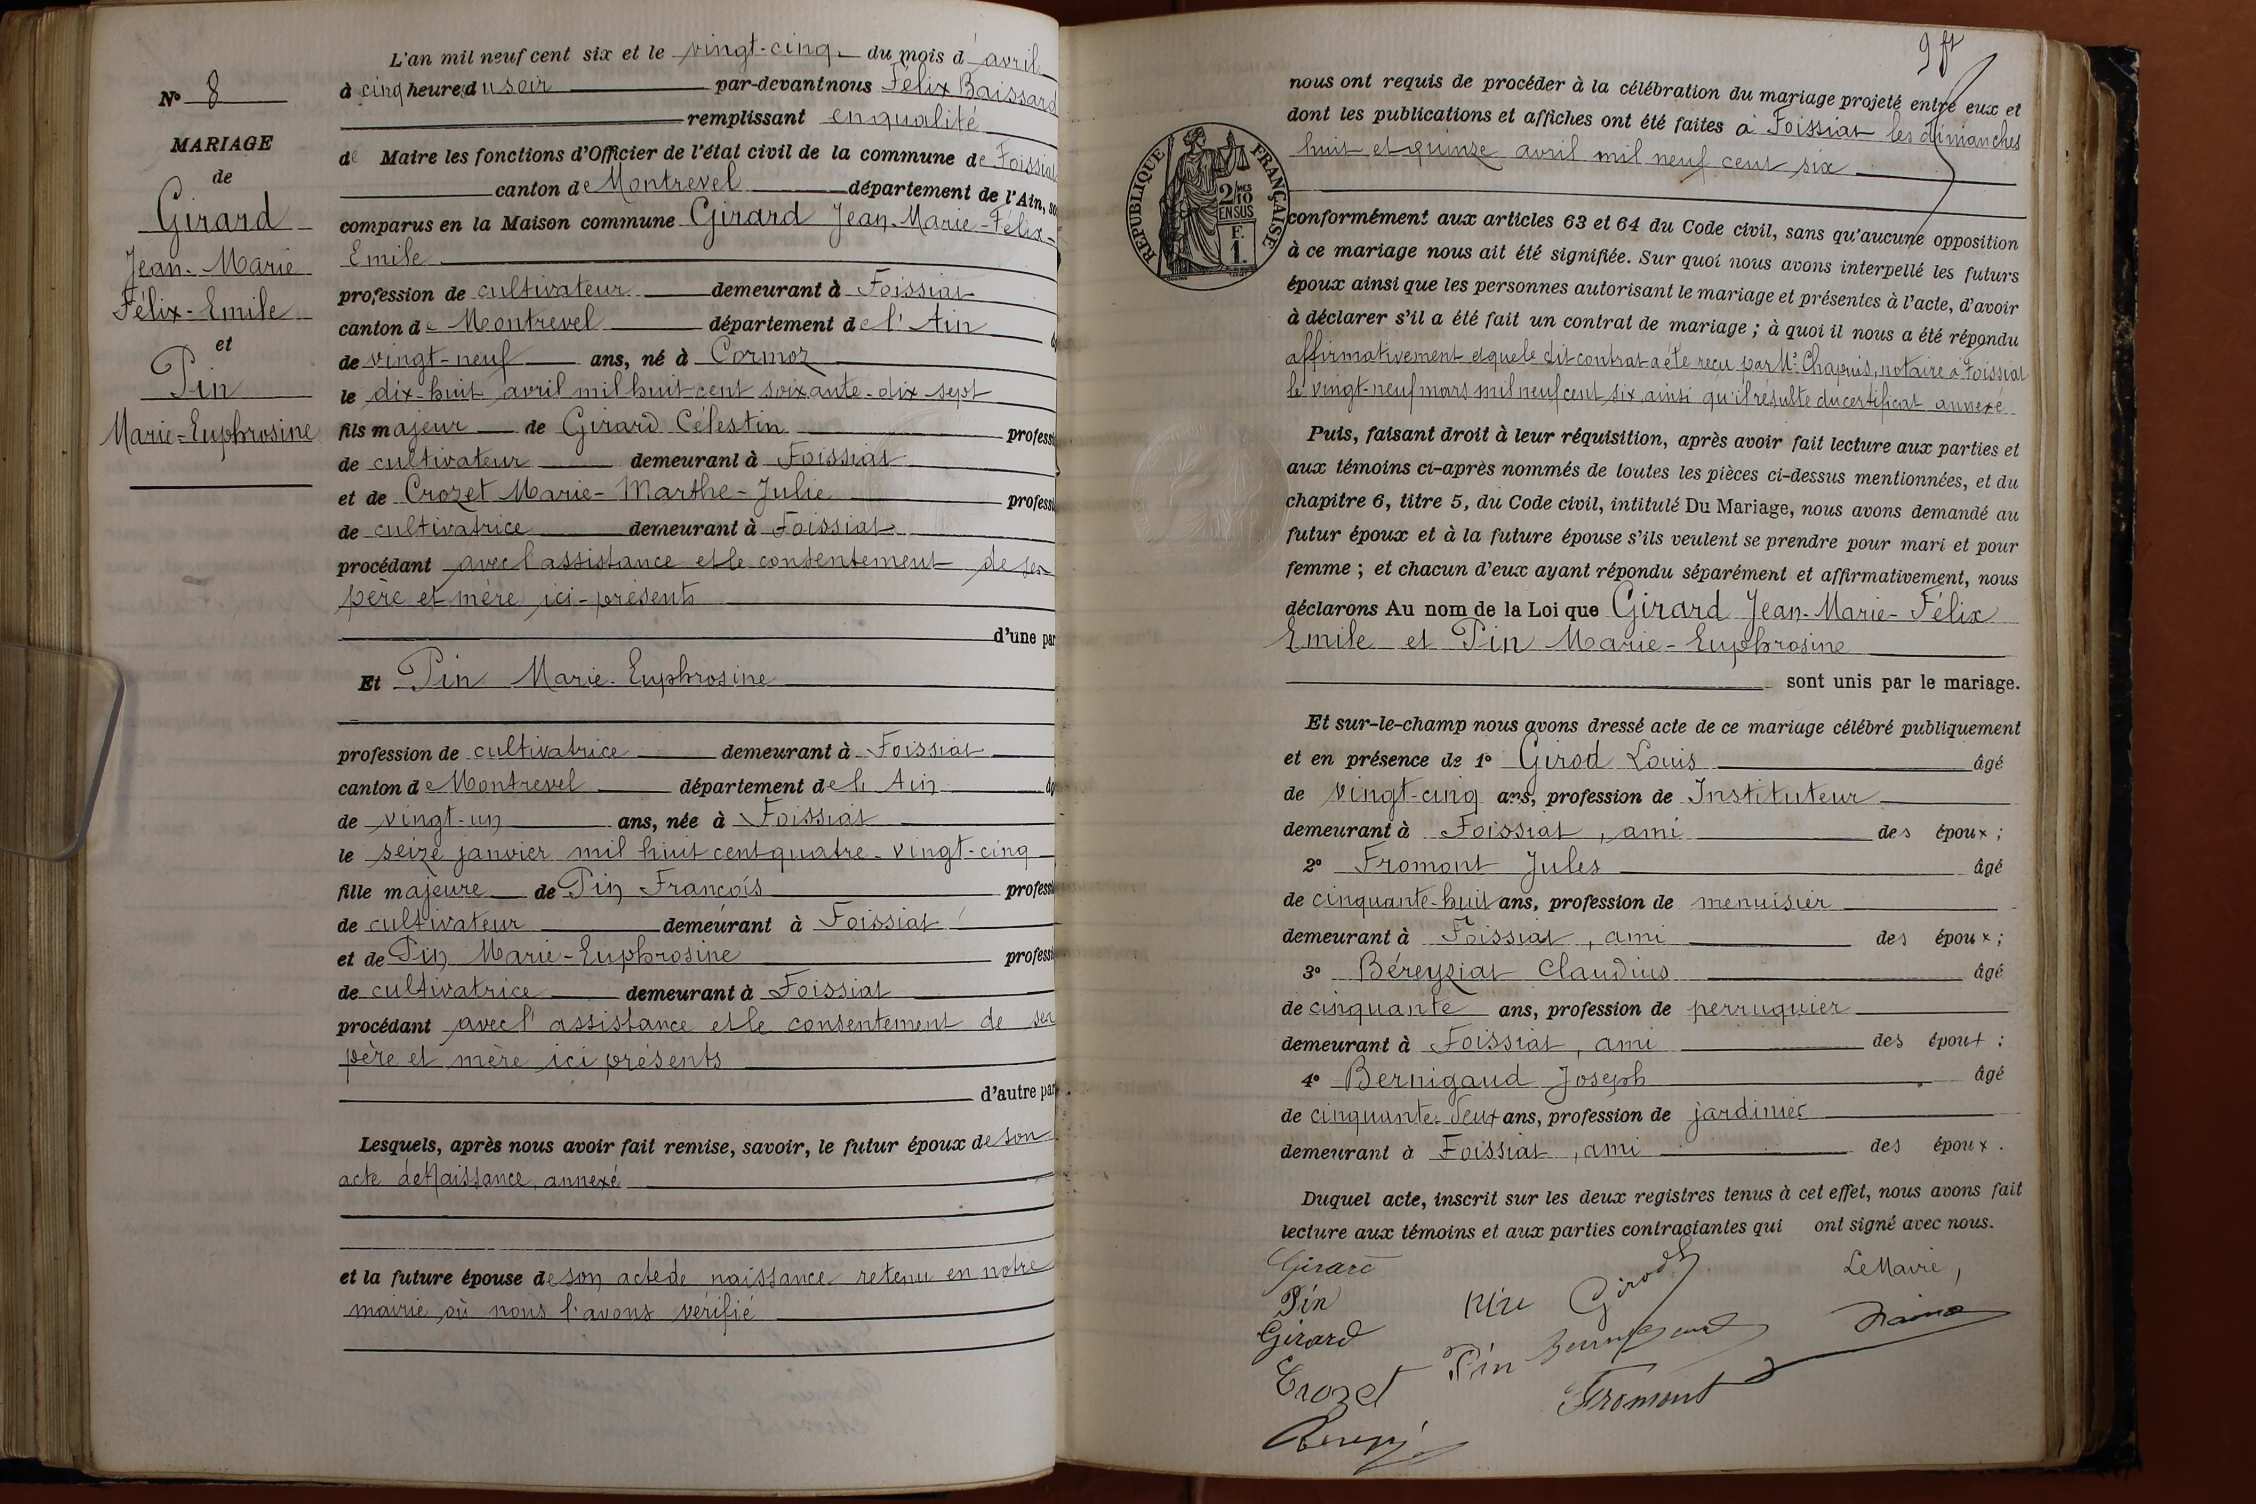 N° 8
MARIAGE
de
Girard
Jean-Marie
Félix-Emile
et
Pin
Marie-Euphrosine
L'an mil neuf cent six et le vingt-cinq du mois d'avril
à cinq heures du soir par-devant nous Félix Baissard
remplissant en qualité
de Maire les fonctions d'Officier de l'état civil de la commune de Foissiat
canton de Montrevel département de l'Ain, so
comparus en la Maison commune Girard Jean-Marie-Félix-
Emile
profession de cultivateur demeurant à Foissiat
canton de Montrevel département de l'Ain
de vingt-neuf ans, né à Cormoz
le dix-huit avril mil huit cent soixante-dix-sept
fils majeur de Girard Célestin professi
de cultivateur demeurant à Foissiat
et de Crozet Marie-Marthe-Julie professi
de cultivatrice demeurant à Foissiat
procédant avec l'assistance et le consentement de ses
père et mère ici-présents
d'une par
Et Pin Marie-Euphrosine
profession de cultivatrice demeurant à Foissiat
canton de Montrevel département de l'Ain
de vingt-un ans, née à Foissiat
le seize janvier mil huit cent quatre-vingt-cinq
fille majeure de Pin François professi
de cultivateur demeurant à Foissiat
et de Pin Marie-Euphrosine professi
de cultivatrice demeurant à Foissiat
procédant avec l'assistance et le consentement de ses
père et mère ici présents
d'autre par
Lesquels, après nous avoir fait remise, savoir, le futur époux de son
acte de Naissance, annexé
et la future épouse de son acte de naissance retenu en notre
mairie où nous l'avons vérifié
9 ft
nous ont requis de procéder à la célébration du mariage projeté entre eux et
dont les publications et affiches ont été faites à Foissiat les dimanches
huit et quinze avril mil neuf cent six
RÉPUBLIQUE FRANÇAISE
2/10MES
EN SUS
F.
1.
conformément aux articles 63 et 64 du Code civil, sans qu'aucune opposition
à ce mariage nous ait été signifiée. Sur quoi nous avons interpellé les futurs
époux ainsi que les personnes autorisant le mariage et présentes à l'acte, d'avoir
à déclarer s'il a été fait un contrat de mariage ; à quoi il nous a été répondu
affirmativement et que le dit contrat a été reçu par Me Chapuis, notaire à Foissiat
le vingt-neuf mars mil neuf cent six, ainsi qu'il résulte du certificat annexé
Puis, faisant droit à leur réquisition, après avoir fait lecture aux parties et
aux témoins ci-après nommés de toutes les pièces ci-dessus mentionnées, et du
chapitre 6, titre 5, du Code civil, intitulé Du Mariage, nous avons demandé au
futur époux et à la future épouse s'ils veulent se prendre pour mari et pour
femme ; et chacun d'eux ayant répondu séparément et affirmativement, nous
déclarons Au nom de la Loi que Girard Jean-Marie-Félix
Emile et Pin Marie-Euphrosine
sont unis par le mariage.
Et sur-le-champ nous avons dressé acte de ce mariage célébré publiquement
et en présence de 1° Girod Louis âgé
de vingt-cinq ans, profession de Instituteur
demeurant à Foissiat, ami des époux ;
2° Fromont Jules âgé
de cinquante-huit ans, profession de menuisier
demeurant à Foissiat, ami des époux ;
3° Béreyziat Claudius âgé
de cinquante ans, profession de perruquier
demeurant à Foissiat, ami des époux :
4° Bernigaud Joseph âgé
de cinquante-deux ans, profession de jardinier
demeurant à Foissiat, ami des époux.
Duquel acte, inscrit sur les deux registres tenus à cet effet, nous avons fait
lecture aux témoins et aux parties contractantes qui ont signé avec nous.
Girard
Girod
Le Maire,
Pin
Girard
Pin
Crozet
Fromont